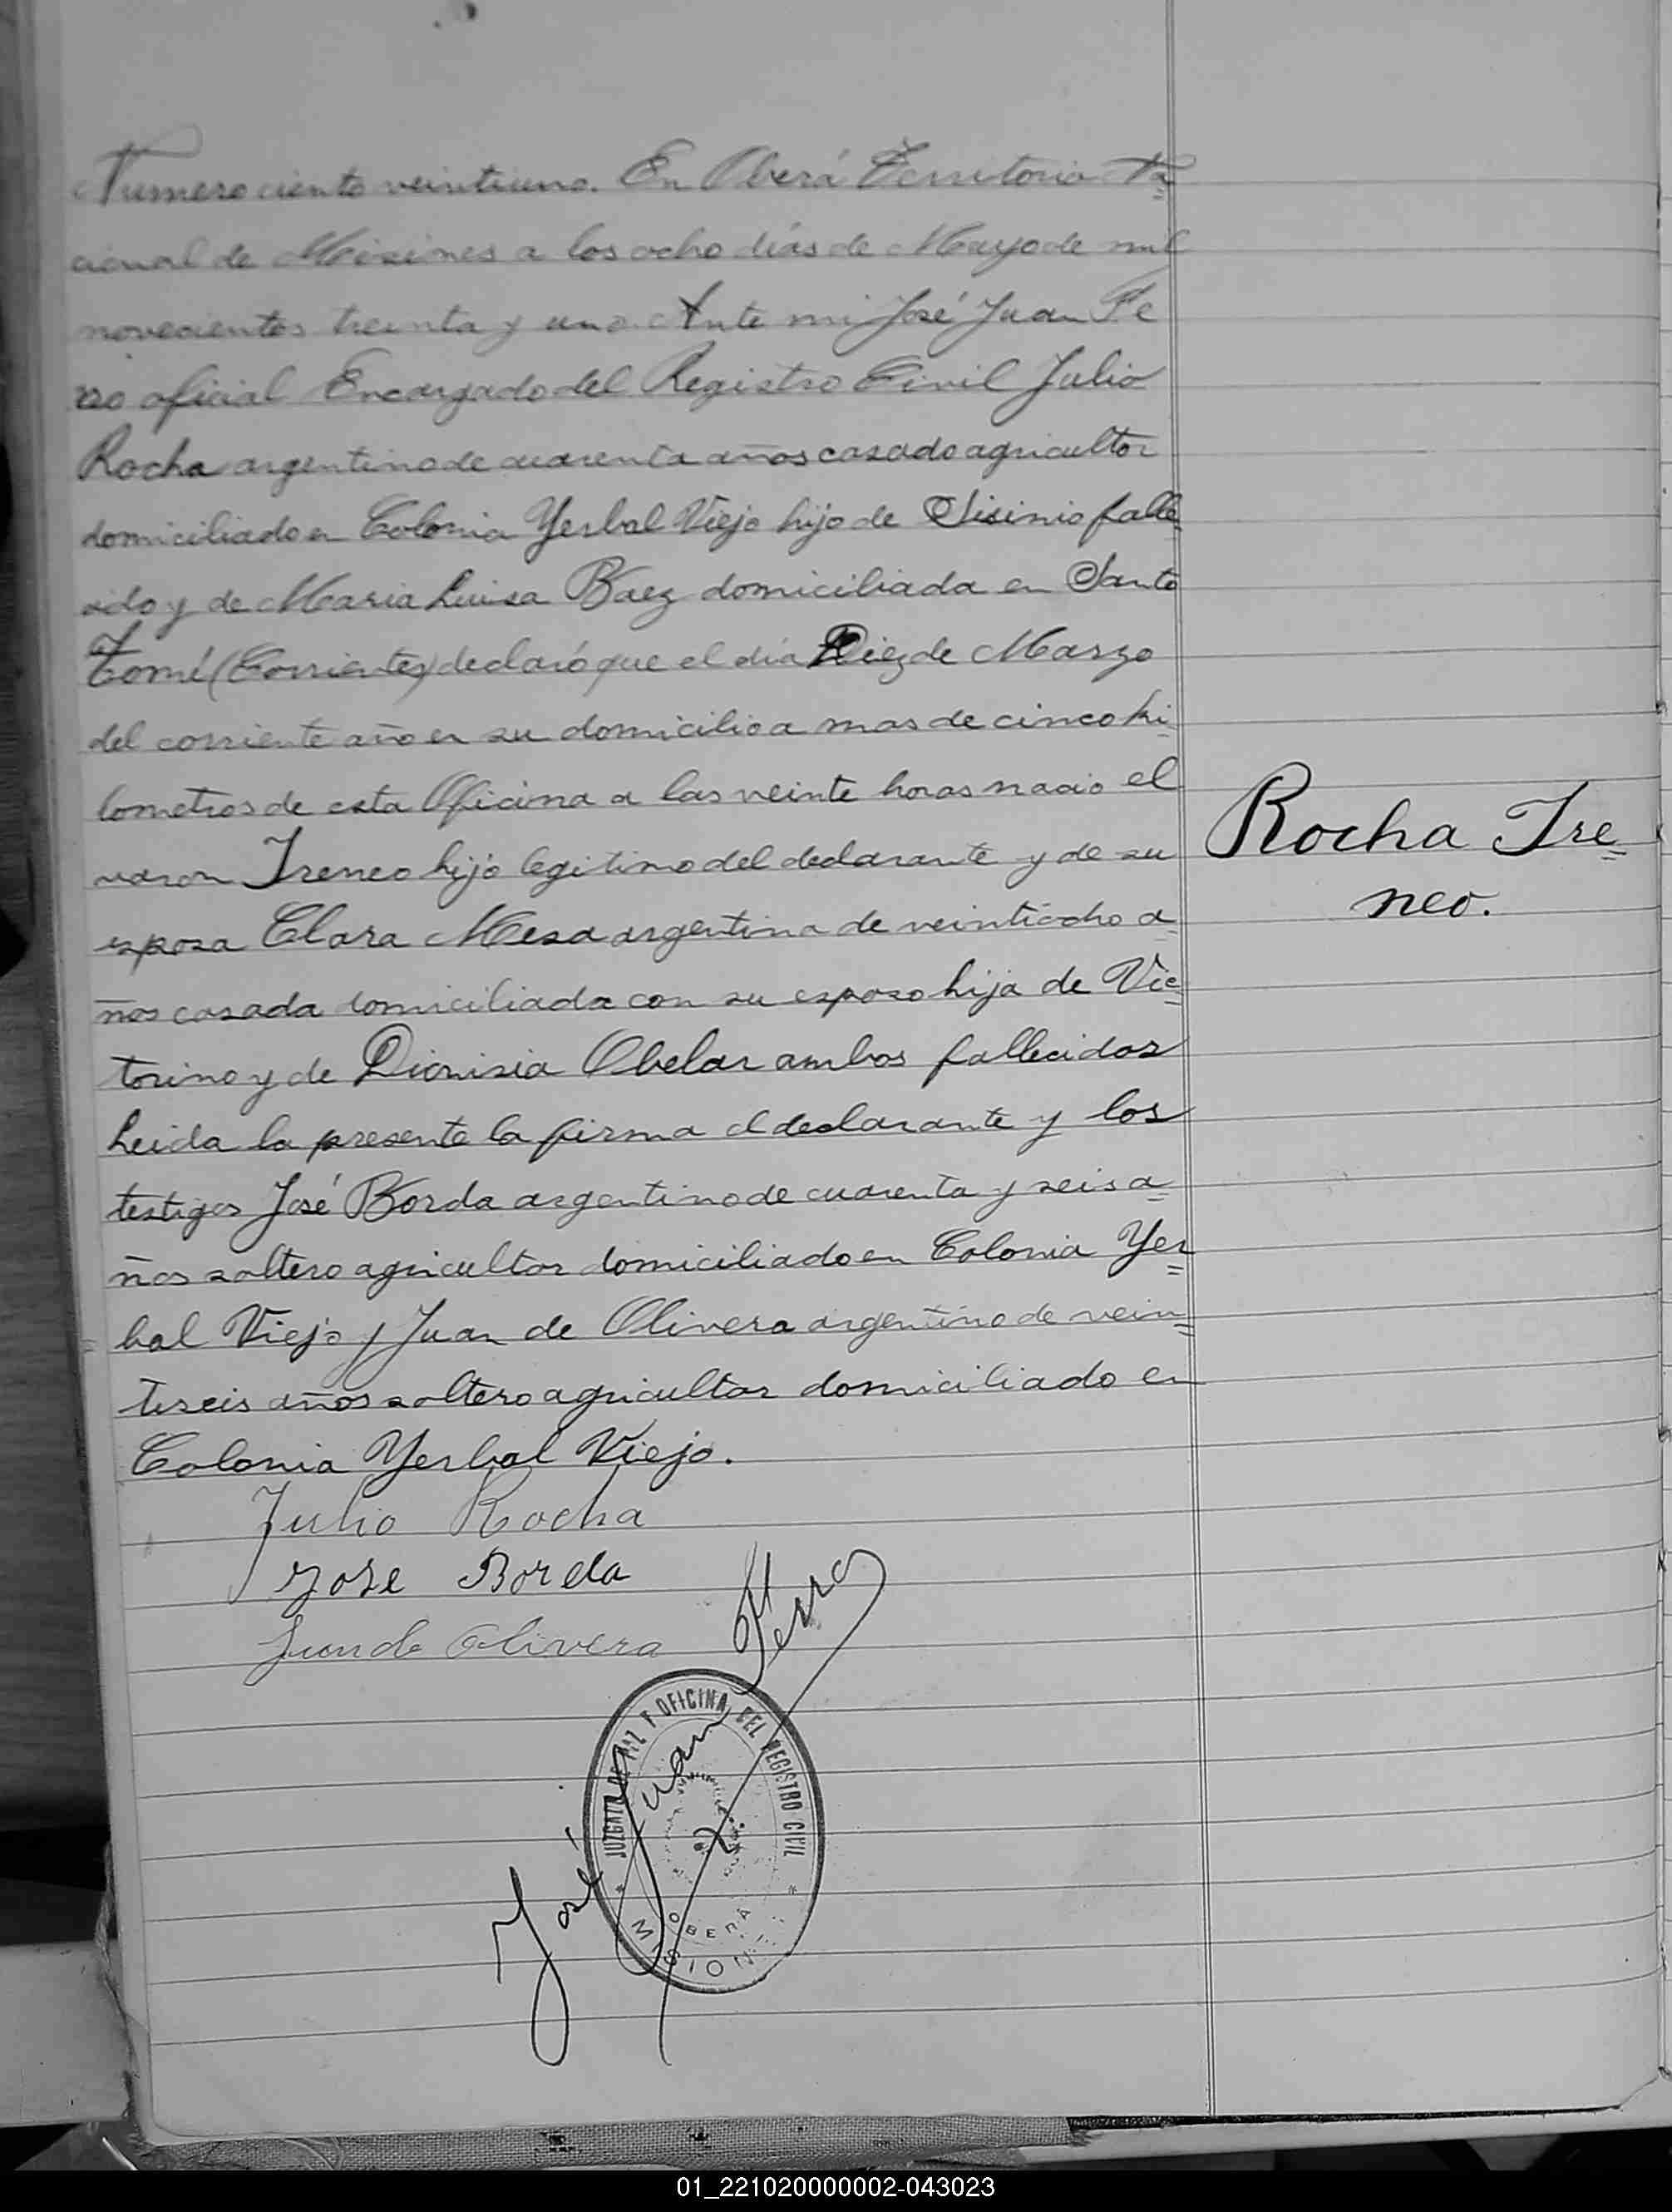 Numero ciento veintiuno. En Oberá Territorio Na=
cional de Misiones a los ocho días de Mayo de mil
novecientos treinta y uno. Ante mi José Juan Fe
rro oficial Encargado del Registro Civil Julio
Rocha argentino de cuarenta años casado agricultor
domiciliado en Colonia Yerbal Viejo hijo de Sisinio falle
cido y de Maria Luisa Baez domiciliada en Santo
Tomé (Corrientes) declaró que el día Diez de Marzo
del corriente año en su domicilio a mas de cinco ki=
lometros de esta Oficina a las veinte horas nació el
varon Ireneo hijo legitimo del declarante y de su
esposa Clara Mesa argentina de veintiocho a=
ños casada domiciliada con su esposo hija de Vic=
torino y de Dionisia Obelar ambos fallecidos
Leida la presente la firma el declarante y los
testigos José Borda argentino de cuarenta y seis a=
ños soltero agricultor domiciliado en Colonia Yer=
bal Viejo y Juan de Olivera argentino de vein=
tiseis años soltero agricultor domiciliado en
Colonia Yerbal Viejo.
Rocha Ire=
neo.
Julio Rocha
Jose Borda
Juan de Olivera
José Juan Ferro
JUZGADO DE PAZ Y OFICINA DEL REGISTRO CIVIL
* OBERÁ *
MISIONES
01_221020000002-043023